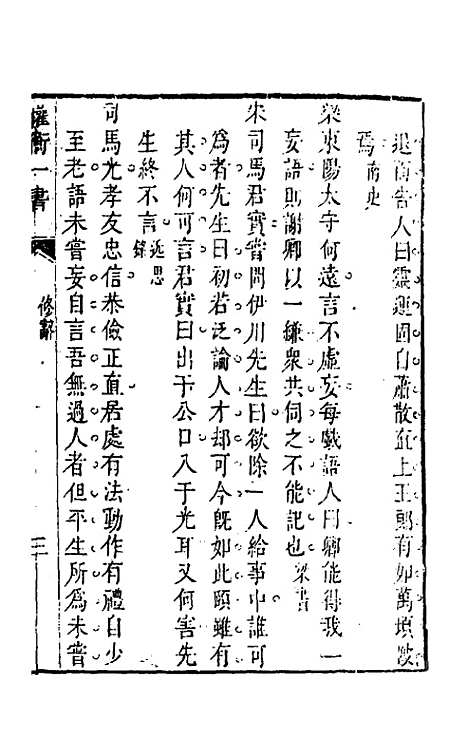 退而告人曰靈運固自蕭散直上王郎有如萬頃陂
焉南史
梁東陽太守何遠言不虛妄每戲語人曰卿能得我一
妄語則謝卿以一縑衆共伺之不能記也梁書
宋司馬君實嘗問伊川先生曰欲除一人給事中誰可
爲者先生曰初若泛論人才却可今旣如此頤雖有
其人何可言君實曰出于公口入于光耳又何害先
生終不言
司馬光孝友忠信恭儉正直居處有法動作有禮自少
至老語未嘗妄自言吾無過人者但平生所爲未嘗
權衡一書
修辭
三